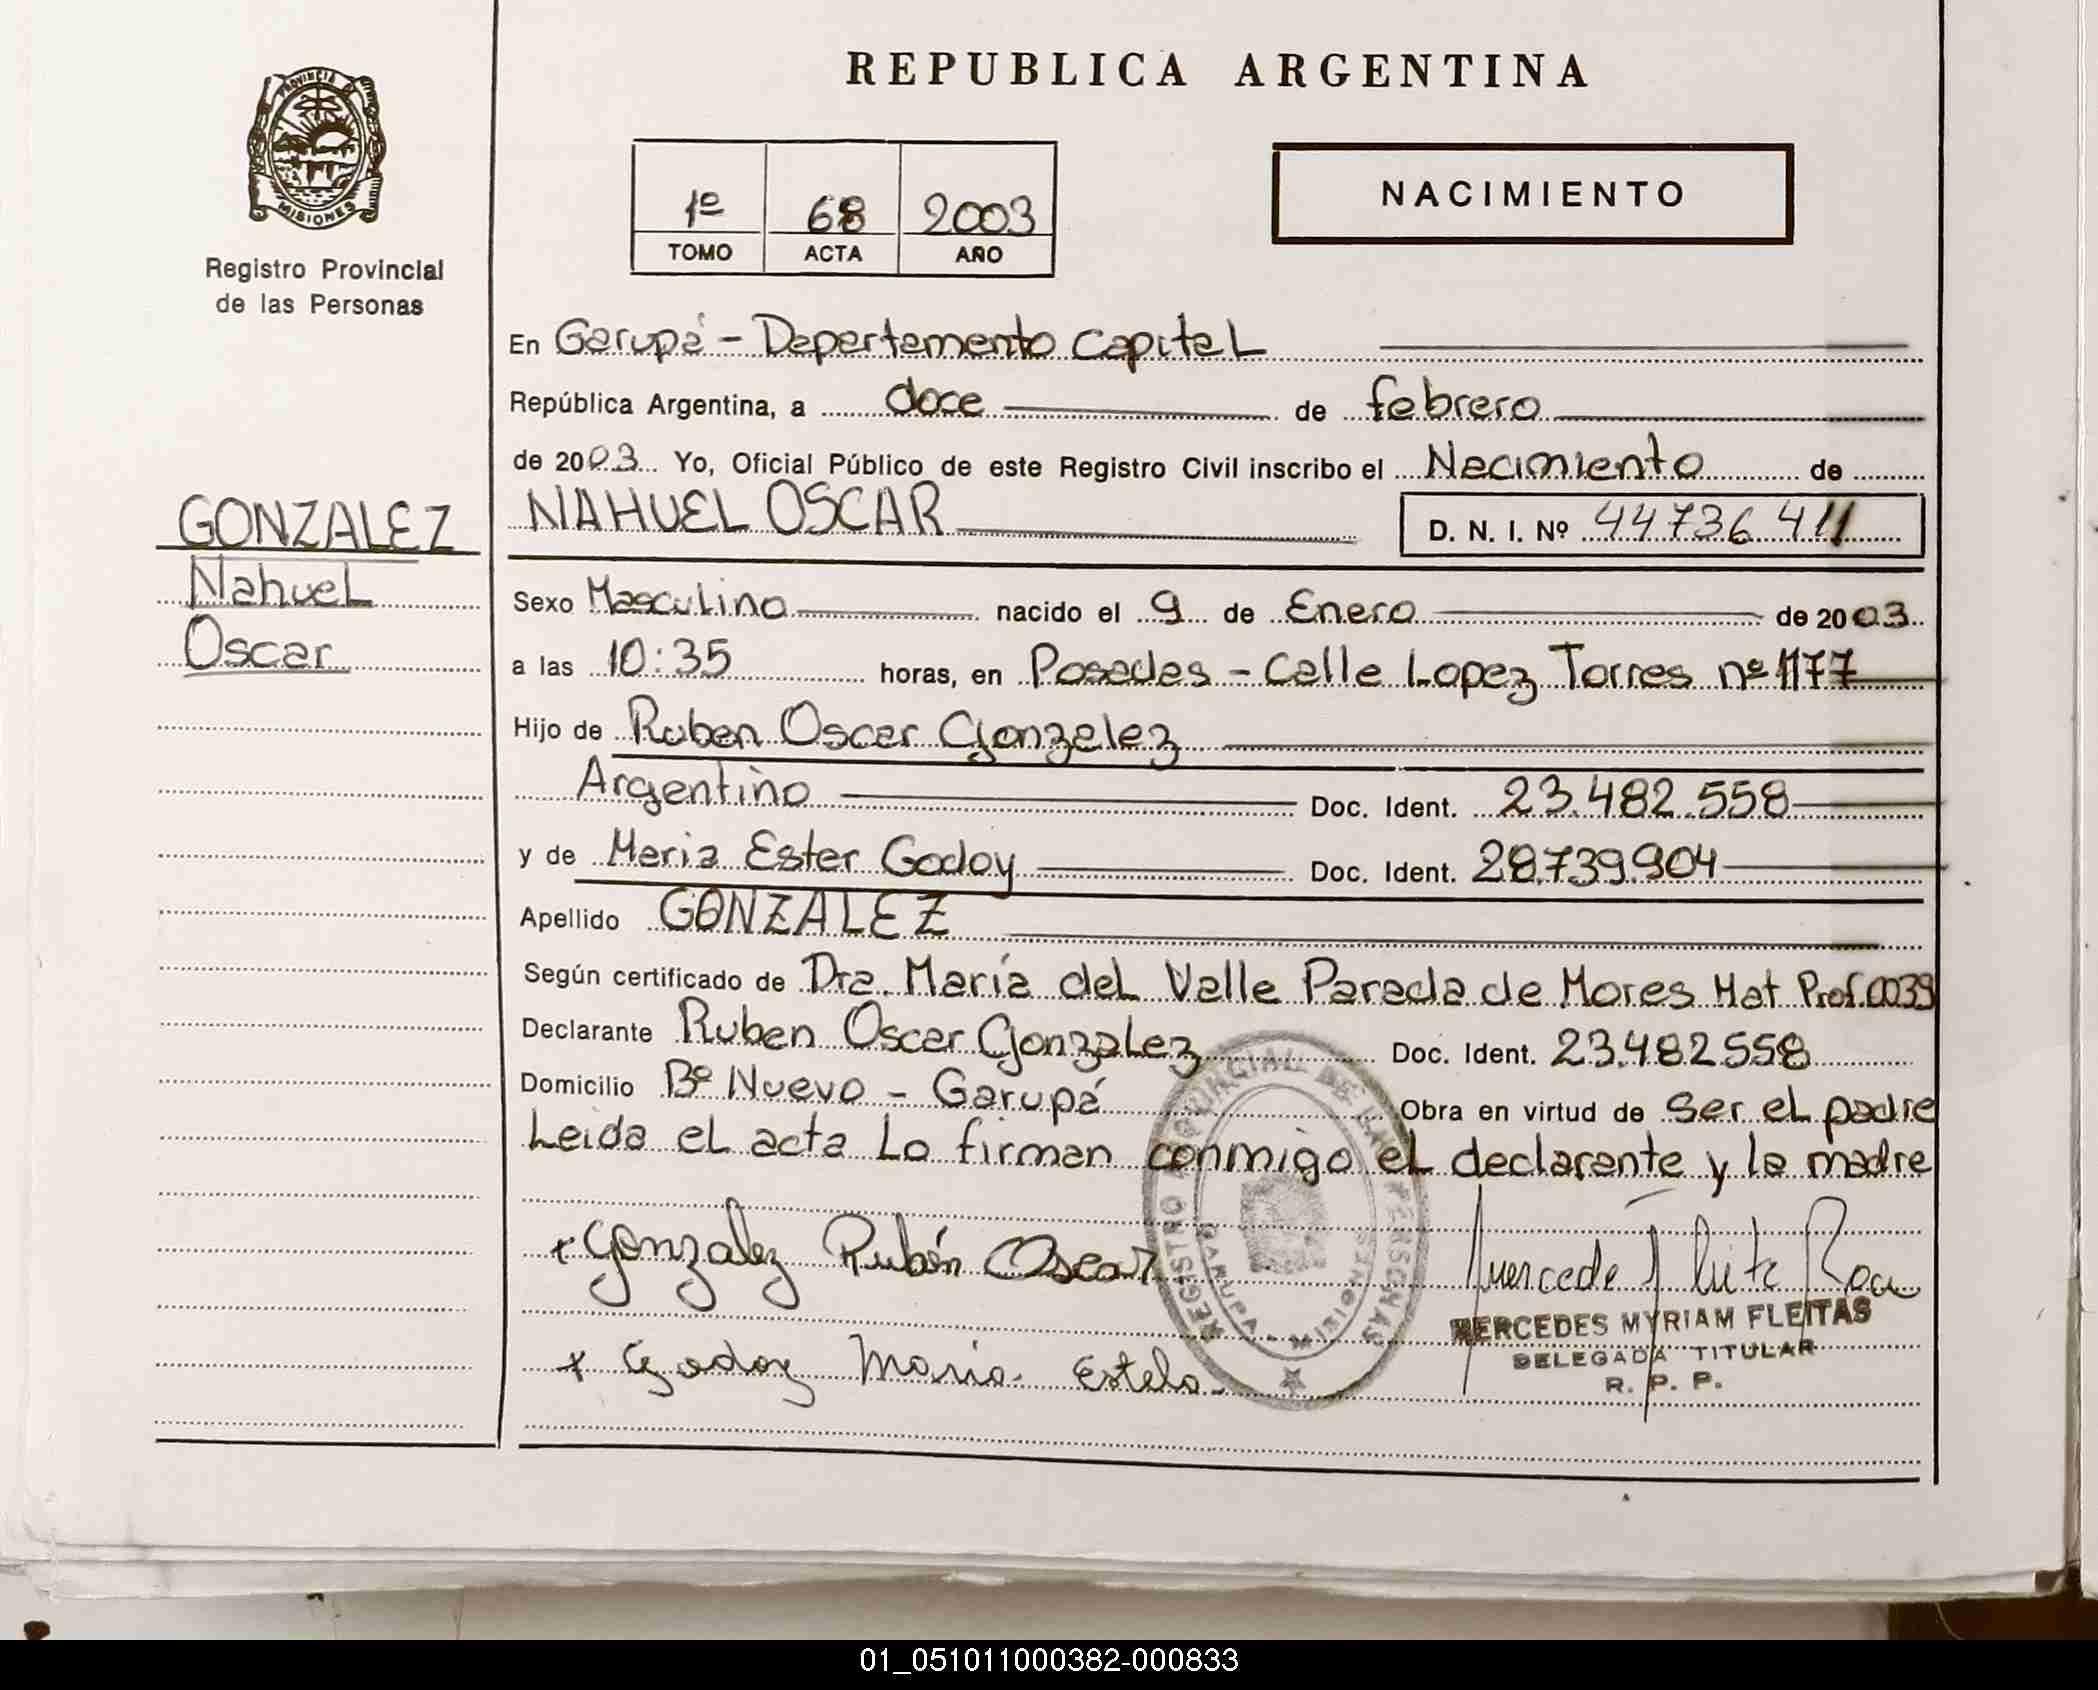 REPUBLICA ARGENTINA
PROVINCIA DE MISIONES
Registro Provincial
de las Personas
1º 68 2003
TOMO ACTA AÑO
NACIMIENTO
En Garupá - Departamento Capital
República Argentina, a doce de febrero
de 2003 Yo, Oficial Público de este Registro Civil inscribo el Nacimiento de
GONZALEZ
Nahuel
Oscar
NAHUEL OSCAR D. N. I. Nº 44736411
Sexo Masculino nacido el 9 de Enero de 2003
a las 10:35 horas, en Posadas - Calle Lopez Torres nº 1177
Hijo de Ruben Oscar Gonzalez
Argentino Doc. Ident. 23.482.558
y de Maria Ester Godoy Doc. Ident. 28.739.904
Apellido GONZALEZ
Según certificado de Dra. María del Valle Parada de Mores Mat Prof.0039
Declarante Ruben Oscar Gonzalez Doc. Ident. 23.482558
Domicilio Bº Nuevo - Garupá Obra en virtud de ser el padre
Leida el acta lo firman conmigo el declarante y la madre
+ Gonzalez Rubén Oscar
+ Godoy Maria Estela
REGISTRO PROVINCIAL DE LAS PERSONAS
GARUPA - MISIONES
MERCEDES MYRIAM FLEITAS
DELEGADA TITULAR
R. P. P.
01_051011000382-000833